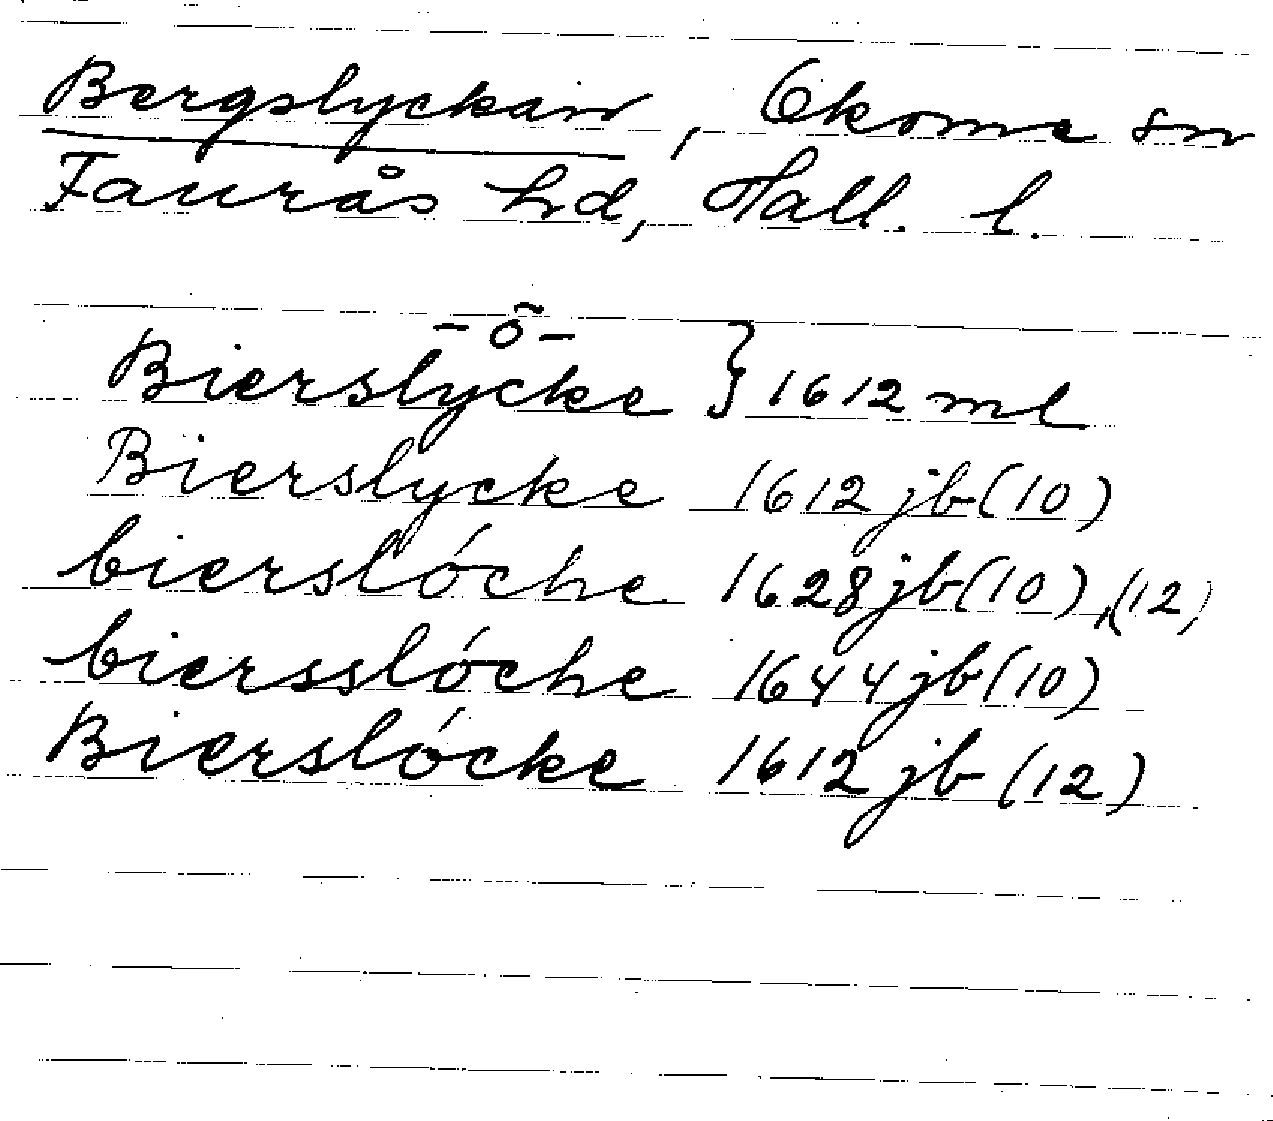 Bergslyckan, Okome sn
Faurås hd, Hall. l.
-õ-
Bierslycke } 1612 ml
Bierslycke 1612 jb (10)
bierslóche 1628 jb (10), (12)
biersslóche 1644 jb (10)
Bierslócke 1612 jb (12)